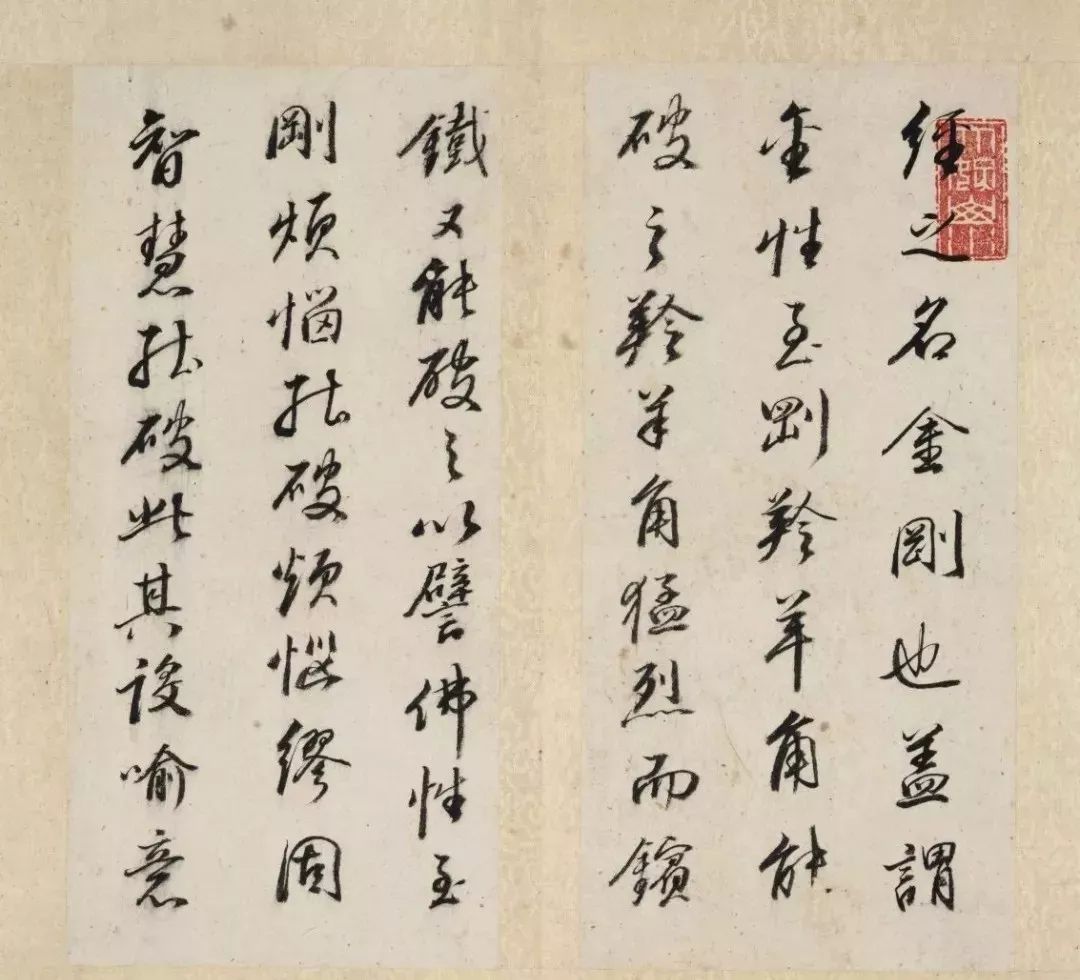 經之名金剛也盖謂
金性至剛羚羊角能
破之羚羊角猛烈而鑌
鐵又能破之以譬佛性至
剛煩惱拙破煩惱繆固
智慧能破此其設喻意